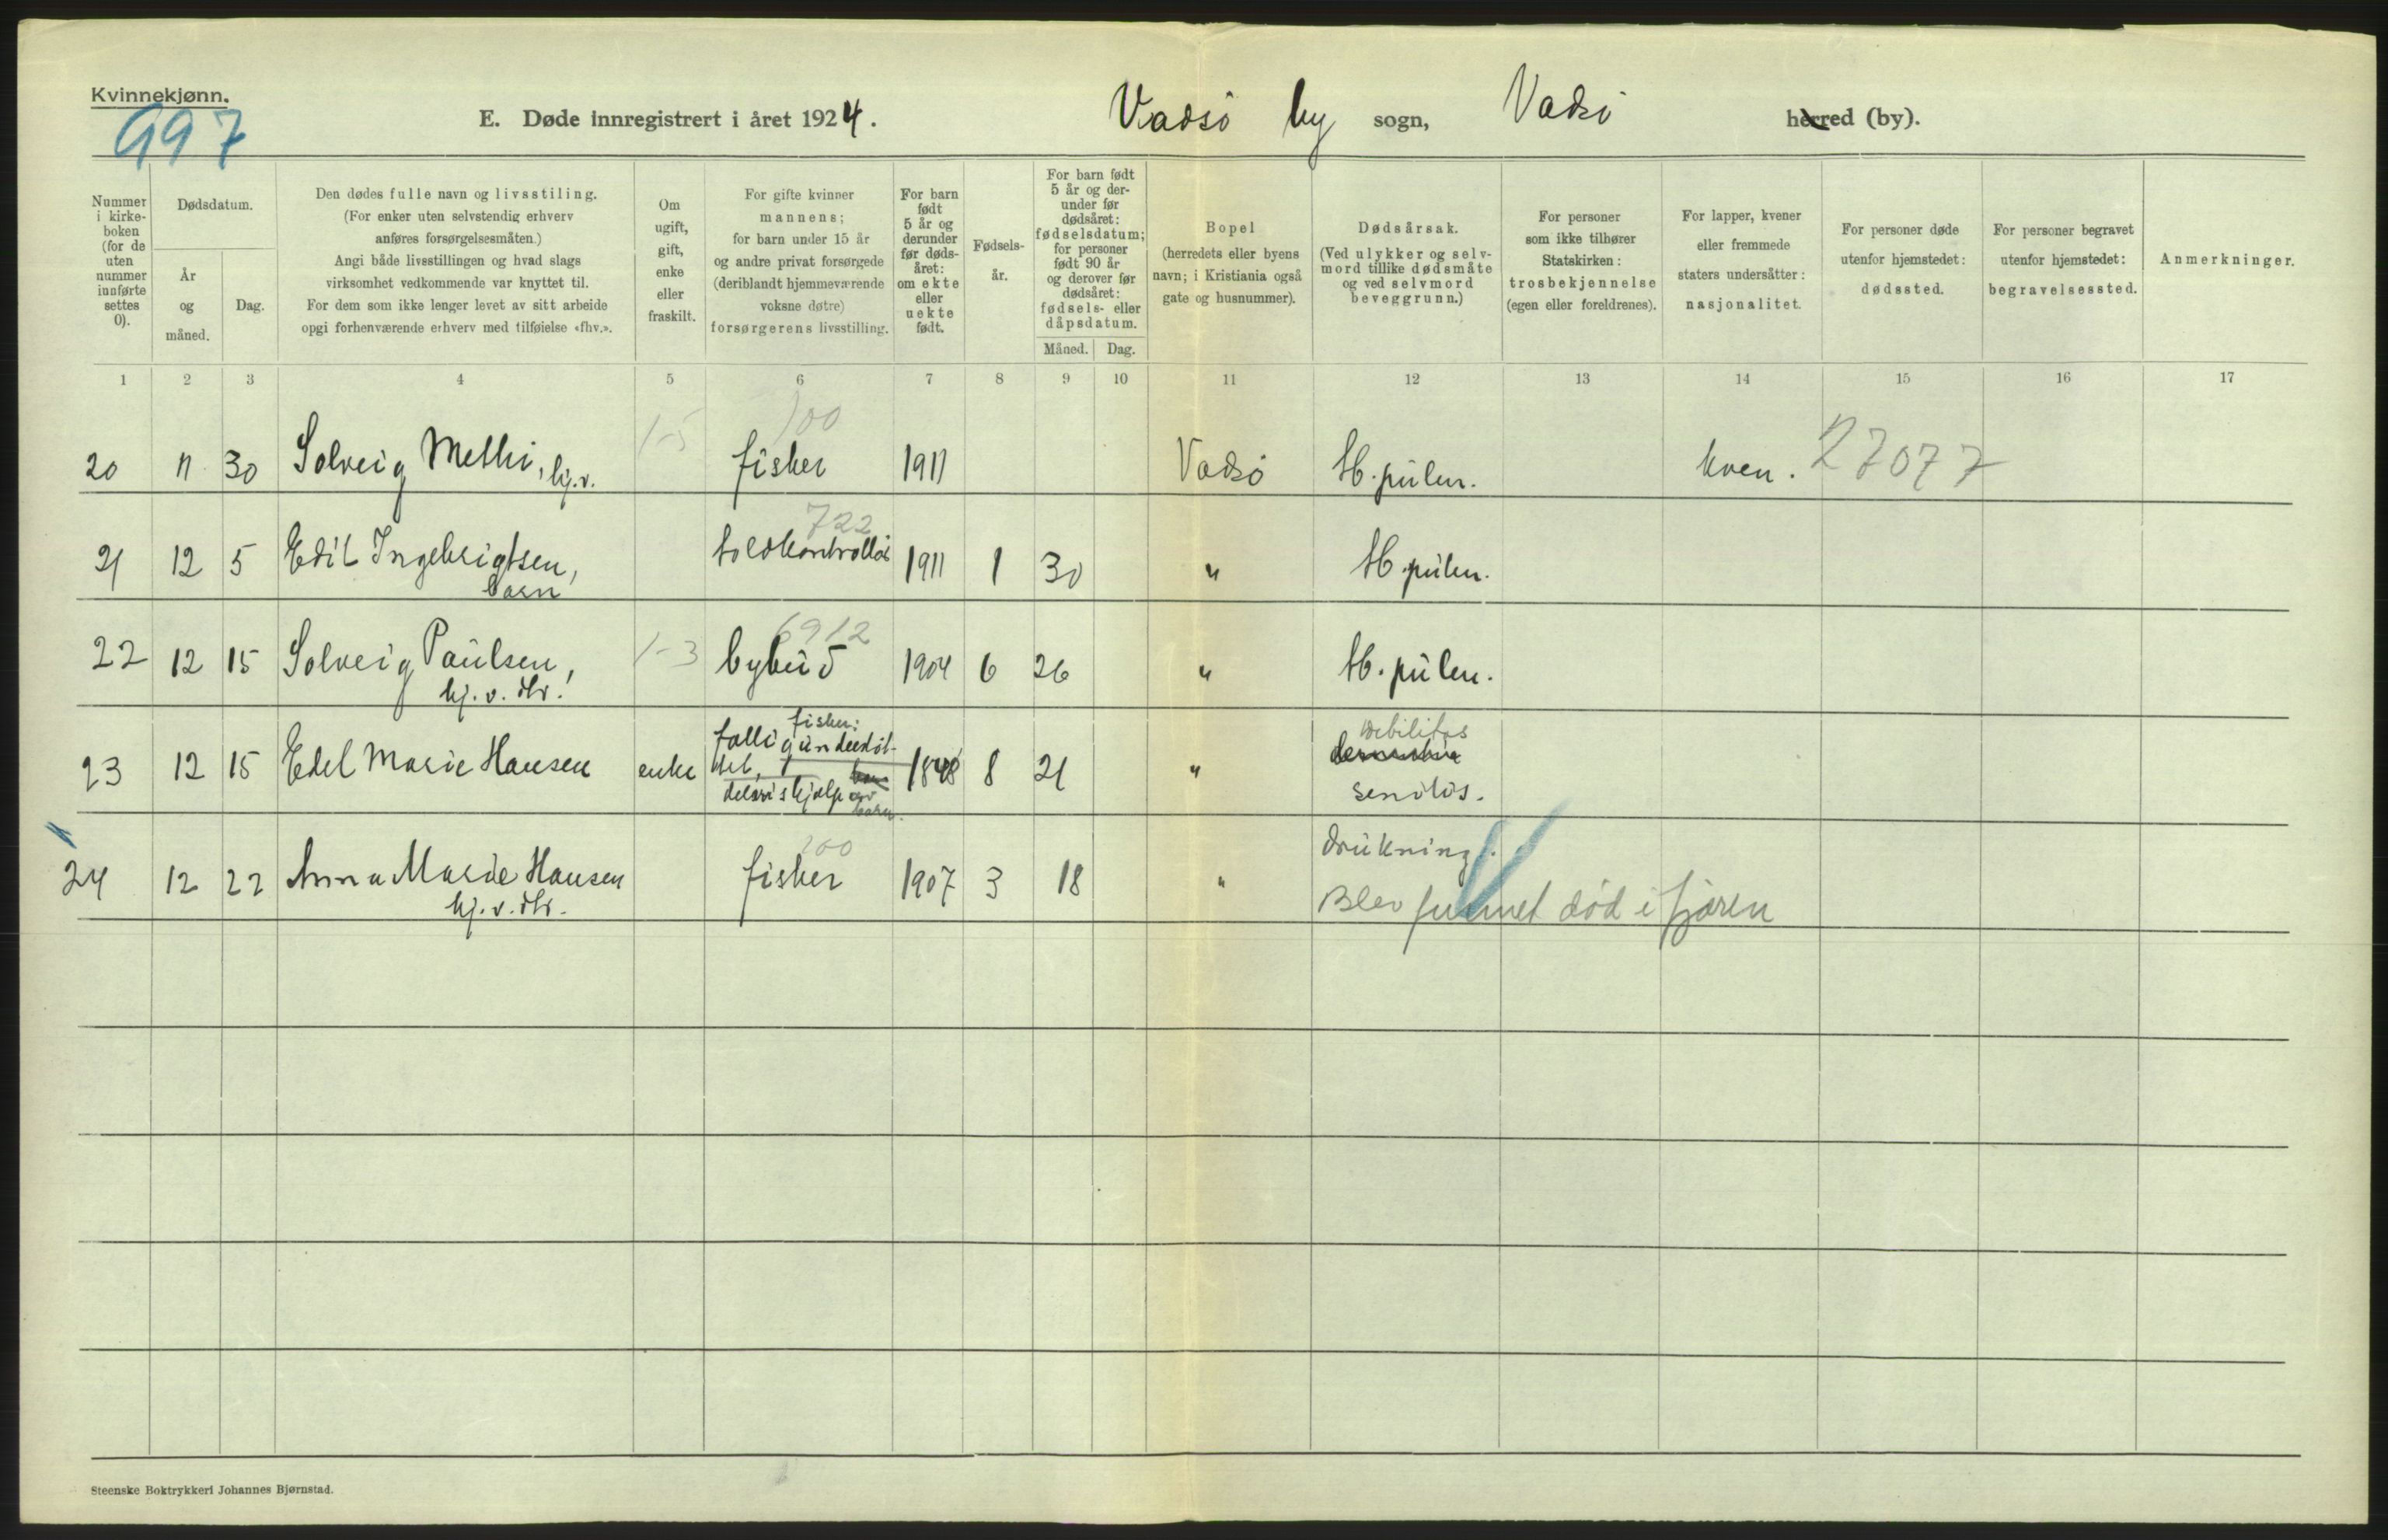 Kvinnekjønn.
997
E. Døde innregistrert i året 1924.
Vadsø by sogn, Vadsø herred (by).
Nummer i kirkeboken (for de uten nummer innførte settes 0).
Dødsdatum.
År og måned.
Dag.
Den dødes fulle navn og livsstiling.
(For enker uten selvstendig erhverv
anføres forsørgelsesmåten.)
Angi både livsstillingen og hvad slags
virksomhet vedkommende var knyttet til.
For dem som ikke lenger levet av sitt arbeide
opgi forhenværende erhverv med tilføielse «fhv.».
Om
ugift,
gift,
enke
eller
fraskilt.
For gifte kvinner
mannens;
for barn under 15 år
og andre privat forsørgede
(deriblandt hjemmeværende
voksne døtre)
forsørgerens livsstilling.
For barn
født
5 år og
derunder
før døds-
året:
om ekte
eller
uekte
født.
Fødsels-
år.
For barn født
5 år og der-
under før
dødsåret:
fødselsdatum;
for personer
født 90 år
og derover før
dødsåret:
fødsels- eller
dåpsdatum.
Måned. Dag.
Bopel
(herredets eller byens
navn; i Kristiania også
gate og husnummer).
Dødsårsak.
(Ved ulykker og selv-
mord tillike dødsmåte
og ved selvmord
beveggrunn.)
For personer
som ikke tilhører
Statskirken:
trosbekjennelse
(egen eller foreldrenes).
For lapper, kvener
eller fremmede
staters undersåtter:
nasjonalitet.
For personer døde
utenfor hjemstedet:
dødssted.
For personer begravet
utenfor hjemstedet:
begravelsessted.
Anmerkninger.
1 2 3 4 5 6 7 8 9 10 11 12 13 14 15 16 17
1-5 100
20 11 30 Solveig Methi, hj.v. fisker 1911 Vadsø th. pulm. kven. 27077
722
21 12 5 Edit Ingebrigtsen, toldkontrollør 1911 1 30 " th. pulm.
barn
6912
22 12 15 Solveig Paulsen, 1-3 bybud 1904 6 26 " th. pulm.
hj. v. dtr.
fisker;
23 12 15 Edel Marie Hansen enke fattigunderstøt- 1848 8 21 " debilitas
tet, senilis.
delvis hjelp av
barn.
200
24 12 22 Anna Marie Hansen fisker 1907 3 18 " drukning.
hj. v. dtr. Blev funnet død i fjæren
Steenske Boktrykkeri Johannes Bjørnstad.